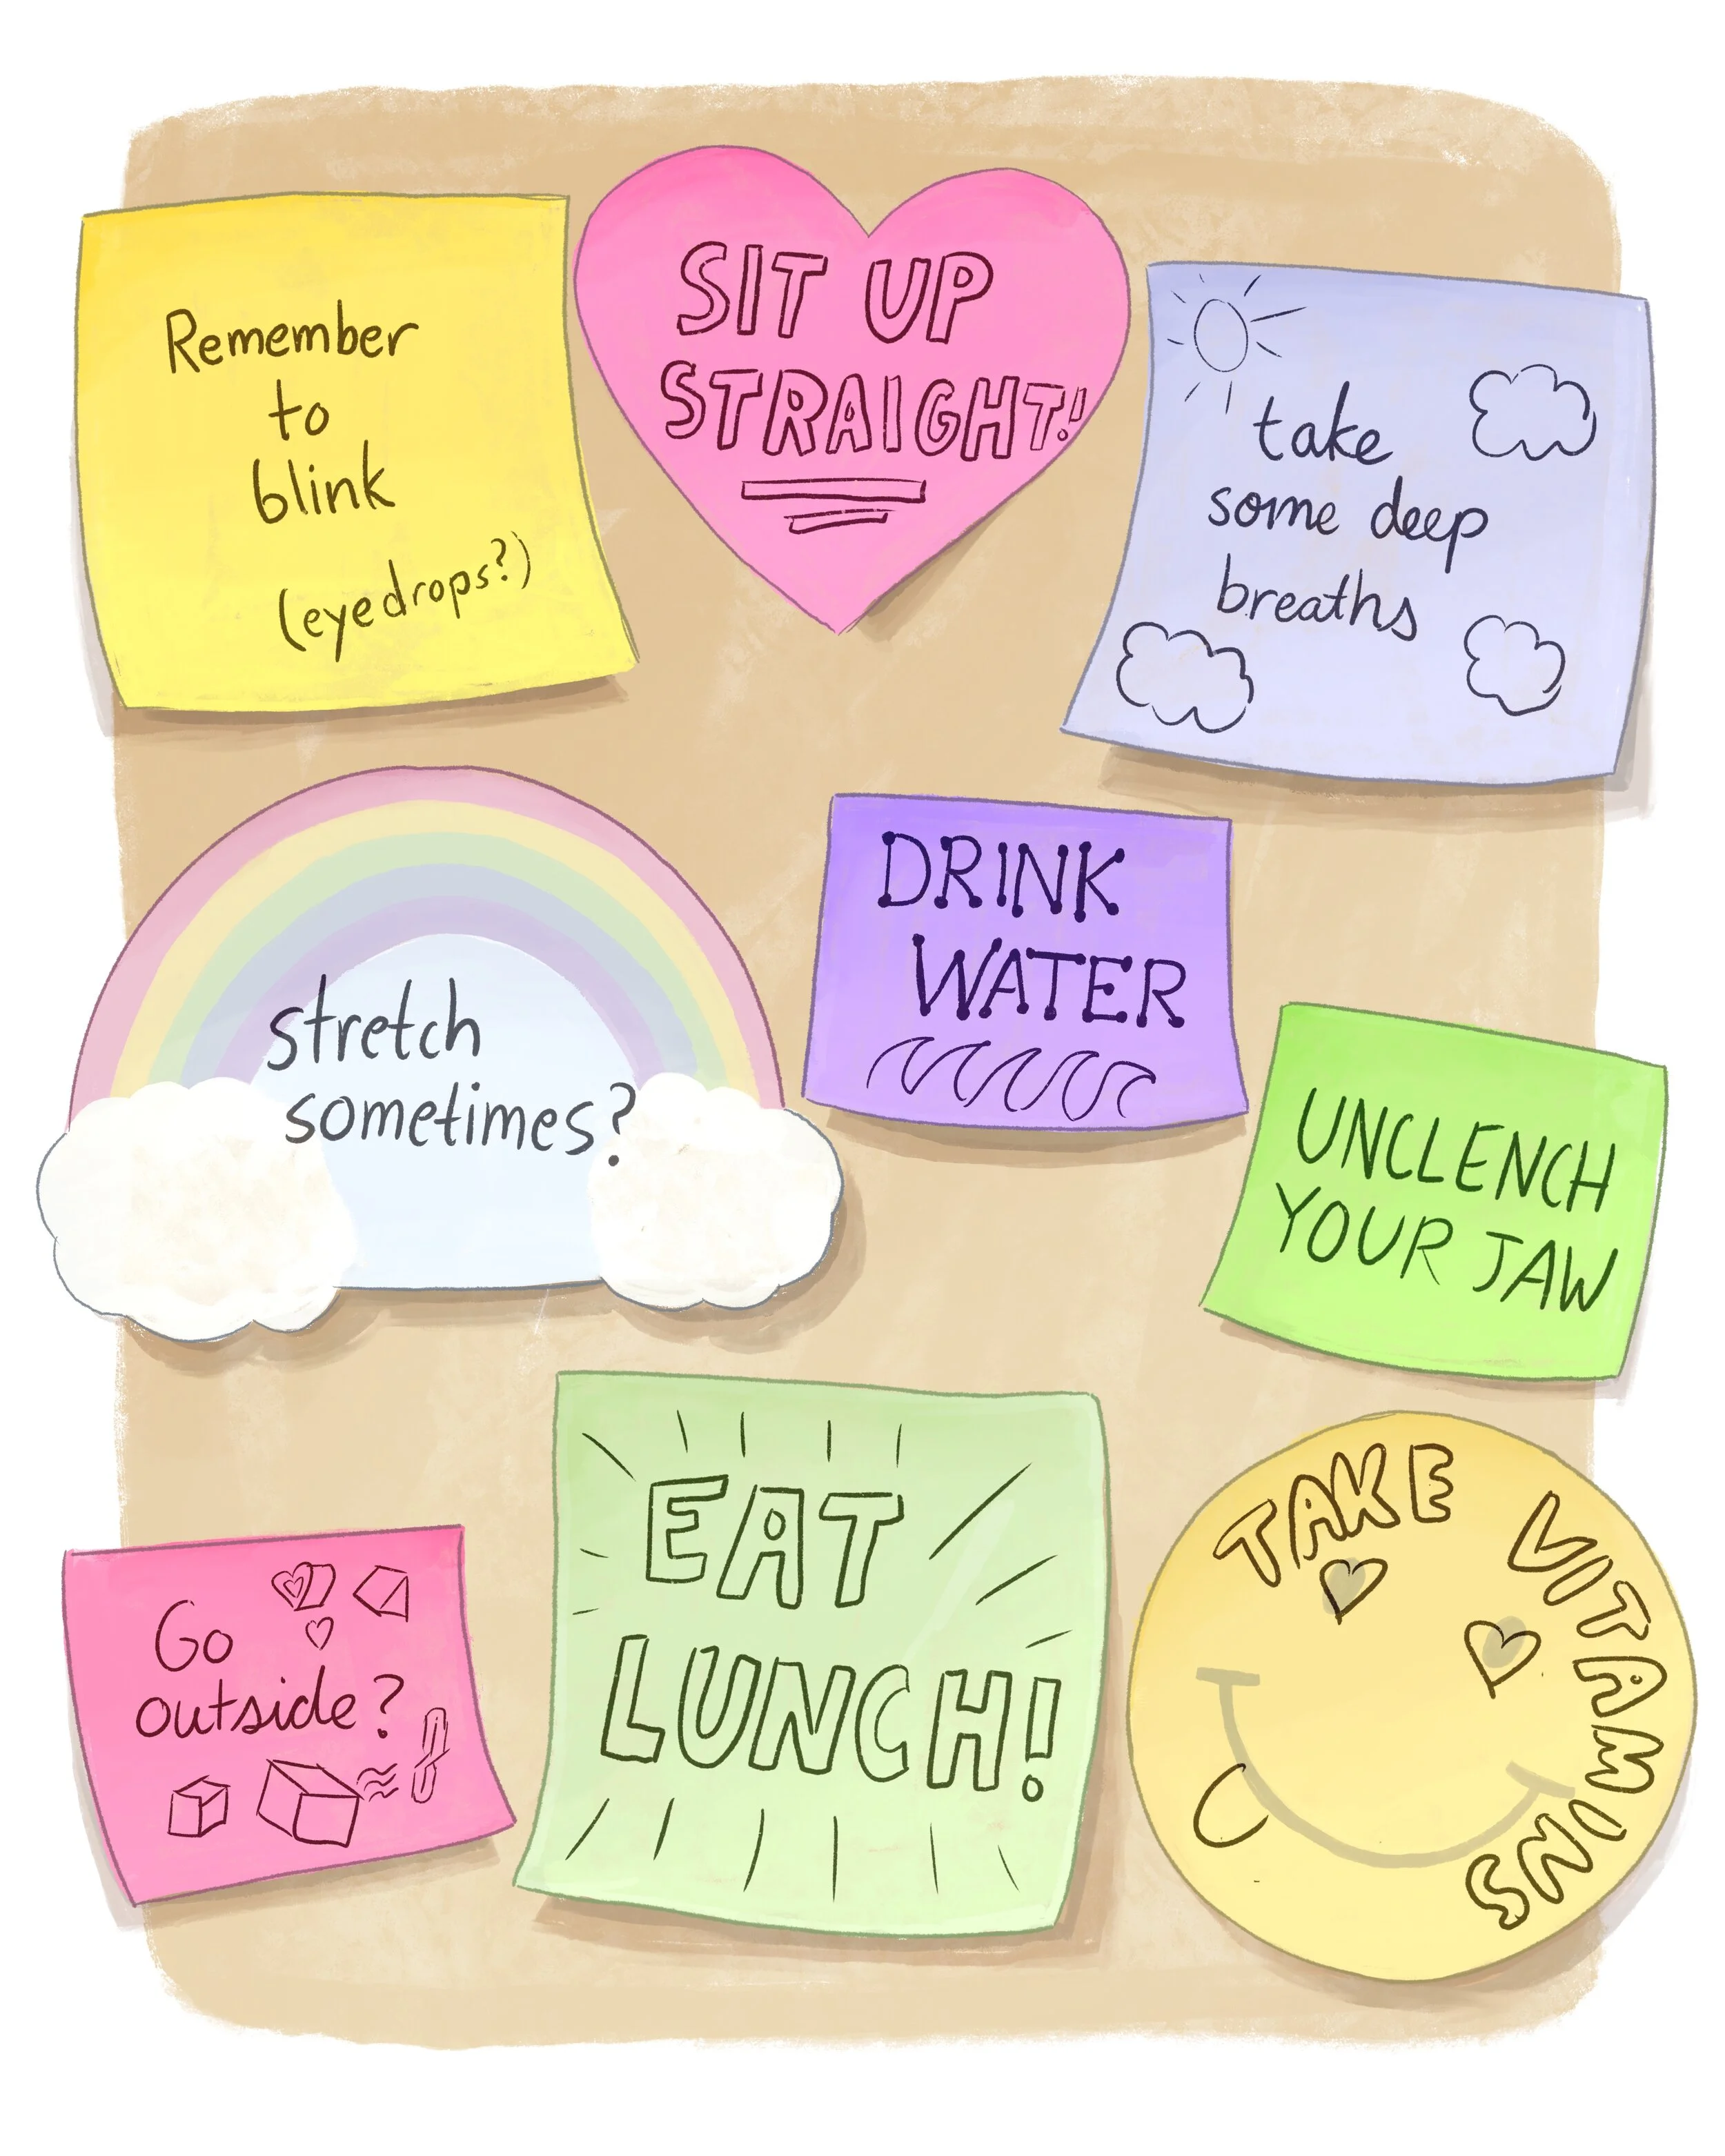 Remember
to
blink
(eyedrops?)
SIT UP
STRAIGHT!
take
some deep
breaths
stretch
sometimes?
DRINK
WATER
UNCLENCH
YOUR JAW
Go
outside?
EAT
LUNCH!
TAKE VITAMINS